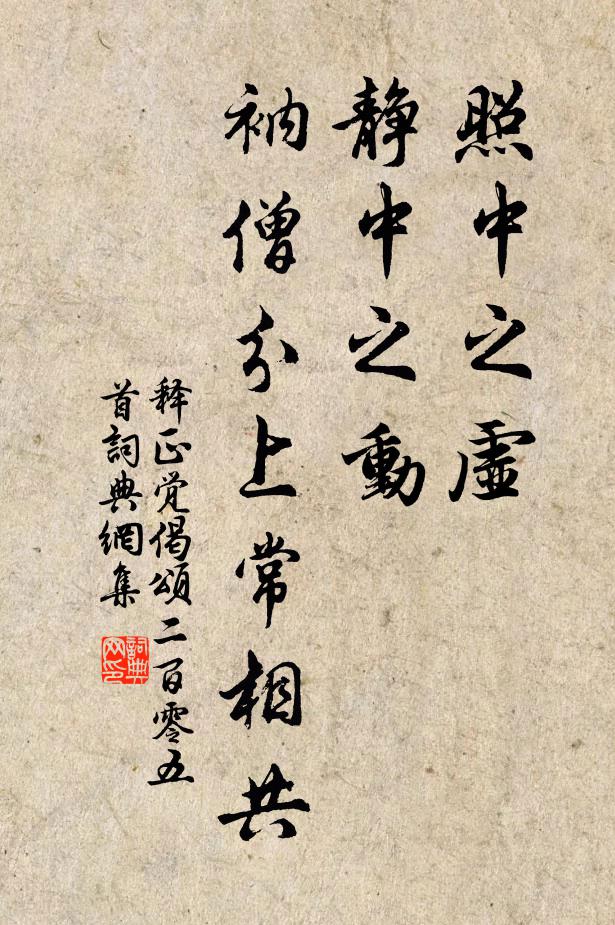 照中之虚
静中之動
衲僧分上常相共
释正觉偈頌二百零五
首詞典網集
詞典
网印